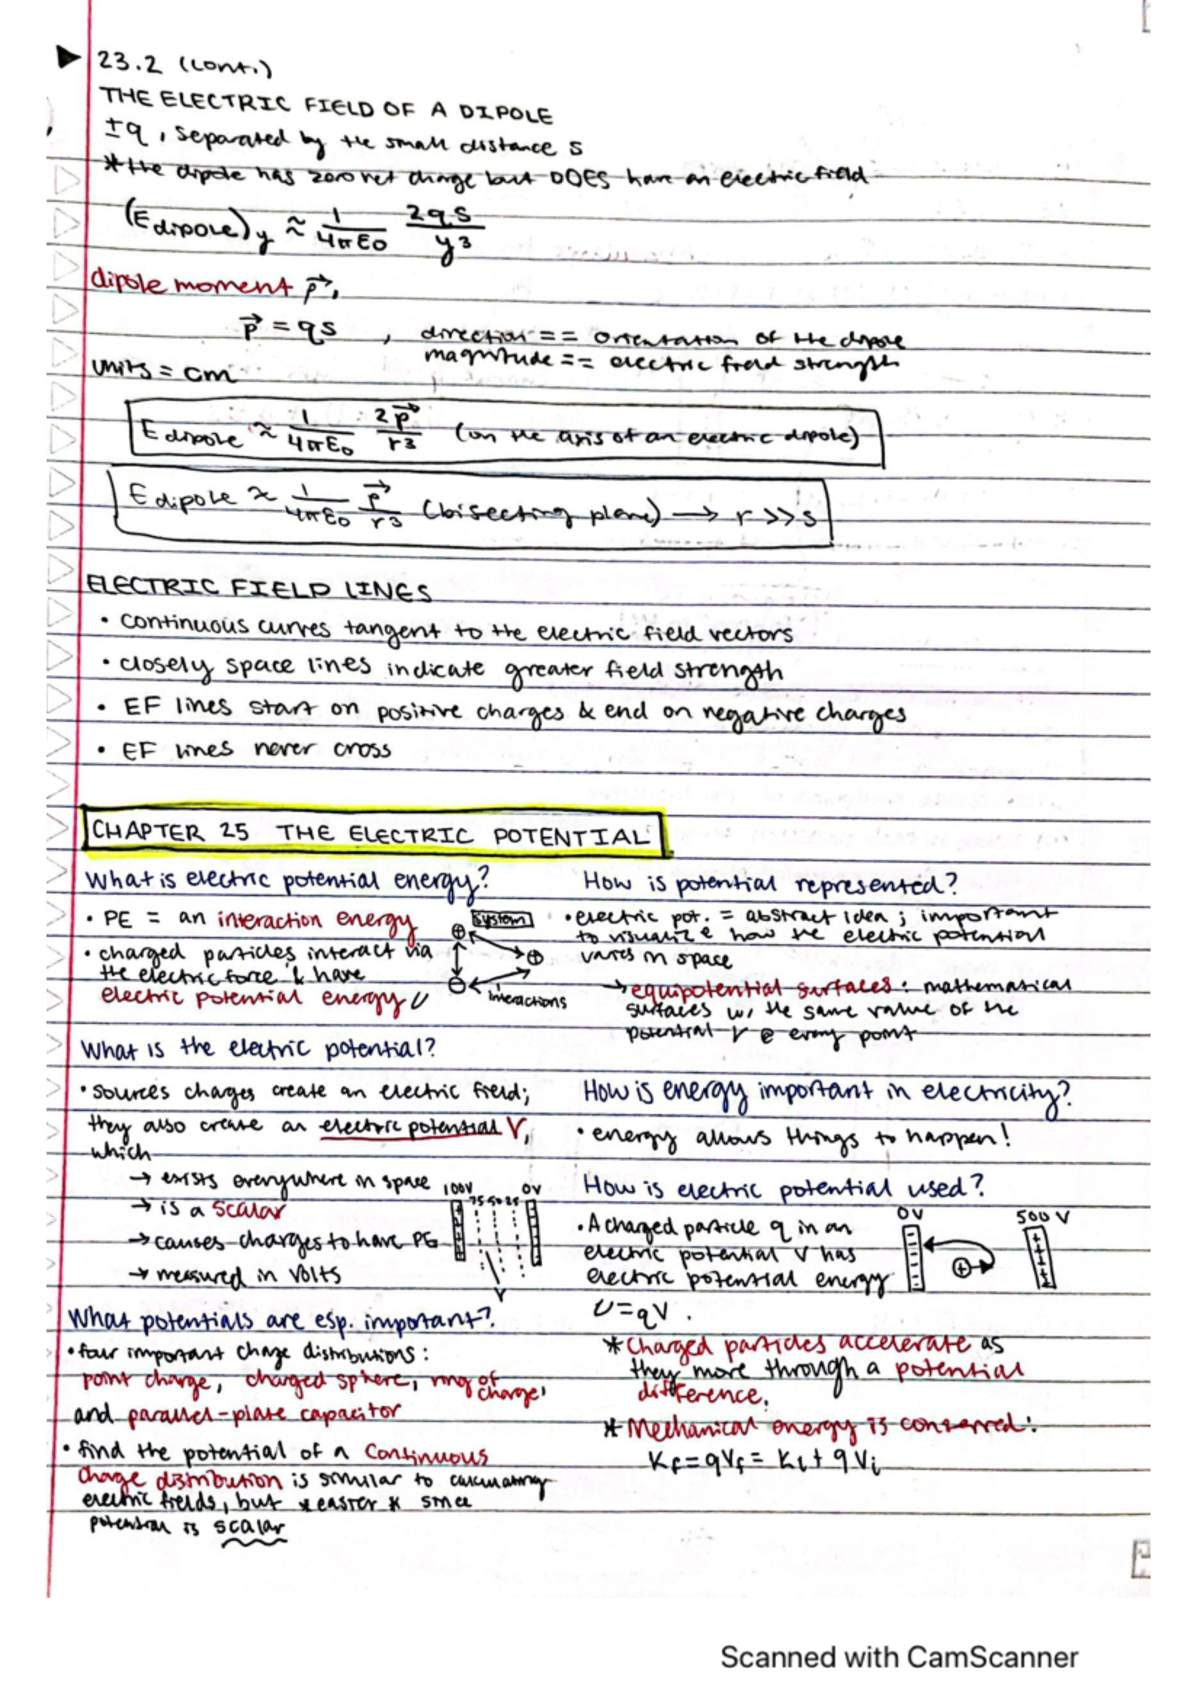 23.2 (cont.)
THE ELECTRIC FIELD OF A DIPOLE
±q, separated by the small distance s
*the dipole has zero net charge but DOES have an electric field
(E dipole)y ≈ 1/4πε0 2qs/y³
dipole moment p⃗,
p⃗ = qs , direction == orientation of the dipole
magnitude == electric field strength
units = cm
E dipole ≈ 1/4πε0 2p⃗/r³ (on the axis of an electric dipole)
E dipole ≈ 1/4πε0 p⃗/r³ (bisecting plane) → r >> s
ELECTRIC FIELD LINES
• continuous curves tangent to the electric field vectors
• closely space lines indicate greater field strength
• EF lines start on positive charges & end on negative charges
• EF lines never cross
CHAPTER 25 THE ELECTRIC POTENTIAL
What is electric potential energy?
• PE = an interaction energy
• charged particles interact via
the electric force & have
electric potential energy U
system
interactions
What is the electric potential?
• sources charges create an electric field;
they also create an electric potential V,
which
→ exists everywhere in space
→ is a scalar
→ causes charges to have PE
→ measured in volts
100V 75 50 25 0V
V
What potentials are esp. important?
• four important charge distributions:
point charge, charged sphere, ring of charge,
and parallel-plate capacitor
• find the potential of a continuous
charge distribution is similar to calculating
electric fields, but *easier* since
potential is scalar
How is potential represented?
• electric pot. = abstract idea; important
to visualize how the electric potential
varies in space
→ equipotential surfaces: mathematical
surfaces w/ the same value of the
potential V @ every point
How is energy important in electricity?
• energy allows things to happen!
How is electric potential used?
• A charged particle q in an
electric potential V has
electric potential energy
U=qV.
0V 500 V
* Charged particles accelerate as
they move through a potential
difference.
* Mechanical energy is conserved:
Kf = qVf = Ki + qVi
Scanned with CamScanner